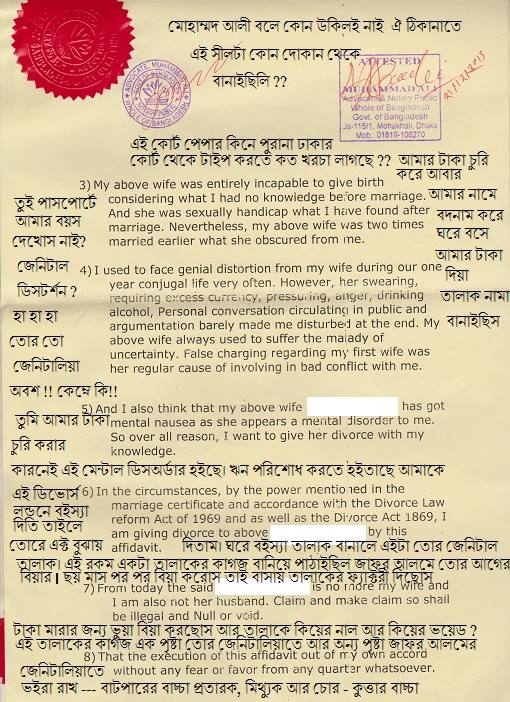 মোহাম্মদ আলী বলে কোন উকিলই নাই ঐ ঠিকানাতে
এই সীলটা কোন দোকান থেকে
বানাইছিলি ??
ADVOCATE, MUHAMMED ALI
ATTESTED
MUHAMMAD ALI
Advocate & Notary Public
Whole of Bangladesh
Govt. of Bangladesh
Ja-115/1, Mohakhali, Dhaka
Mob.: 01819-106270
21/12/2013
এই কোর্ট পেপার কিনে পুরানা ঢাকার
কোর্ট থেকে টাইপ করতে কত খরচা লাগছে ?? আমার টাকা চুরি
করে আবার
আমার নামে
বদনাম করে
ঘরে বসে
আমার টাকা
দিয়া
তালাক নামা
বানাইছিস
তুই পাসপোর্টে
আমার বয়স
দেখোস নাই?
জেনিটাল
ডিসটর্শন ?
হা হা হা
তোর তো
জেনিটালিয়া
অবশ !! কেম্নে কি!!
3) My above wife was entirely incapable to give birth
considering what I had no knowledge before marriage.
And she was sexually handicap what I have found after
marriage. Nevertheless, my above wife was two times
married earlier what she obscured from me.
4) I used to face genial distortion from my wife during our one
year conjugal life very often. However, her swearing,
requiring excess currency, pressuring, anger, drinking
alcohol, Personal conversation circulating in public and
argumentation barely made me disturbed at the end. My
above wife always used to suffer the malady of
uncertainty. False charging regarding my first wife was
her regular cause of involving in bad conflict with me.
5) And I also think that my above wife has got
mental nausea as she appears a mental disorder to me.
So over all reason, I want to give her divorce with my
knowledge.
তুমি আমার টাকা
চুরি করার
কারনেই এই মেন্টাল ডিসঅর্ডার হইছে। ঋন পরিশোধ করতে হইতাছে আমাকে
এই ডিভোর্স
লন্ডনে বইস্যা
দিতি তাইলে
তোরে এক্ট বুঝায়
6) In the circumstances, by the power mentioned in the
marriage certificate and accordance with the Divorce Law
reform Act of 1969 and as well as the Divorce Act 1869, I
am giving divorce to above by this
affidavit. দিতাম। ঘরে বইস্যা তালাক বানালে এইটা তোর জেনিটাল
তালাক। এই রকম একটা তালাকের কাগজ বানিয়ে পাঠাইছিল জাফর আলমে তোর আগের
বিয়ার। ছয় মাস পর পর বিয়া করোস তাই বাসায় তালাকের ফ্যাক্টরী দিছোস
7) From today the said is no more my wife and
I am also not her husband. Claim and make claim so shall
be illegal and Null or void.
টাকা মারার জন্য ভুয়া বিয়া করছোস আর তালাকে কিয়ের নাল আর কিয়ের ভয়েড ?
এই তালাকের কাগজ এক পৃষ্টা তোর জেনিটালিয়াতে আর অন্য পৃষ্টা জাফর আলমের
8) That the execution of this affidavit out of my own accord
জেনিটালিয়াতে without any fear or favor from any quarter whatsoever.
ভইরা রাখ --- বাটপারের বাচ্চা প্রতারক, মিথ্যুক আর চোর - কুত্তার বাচ্চা